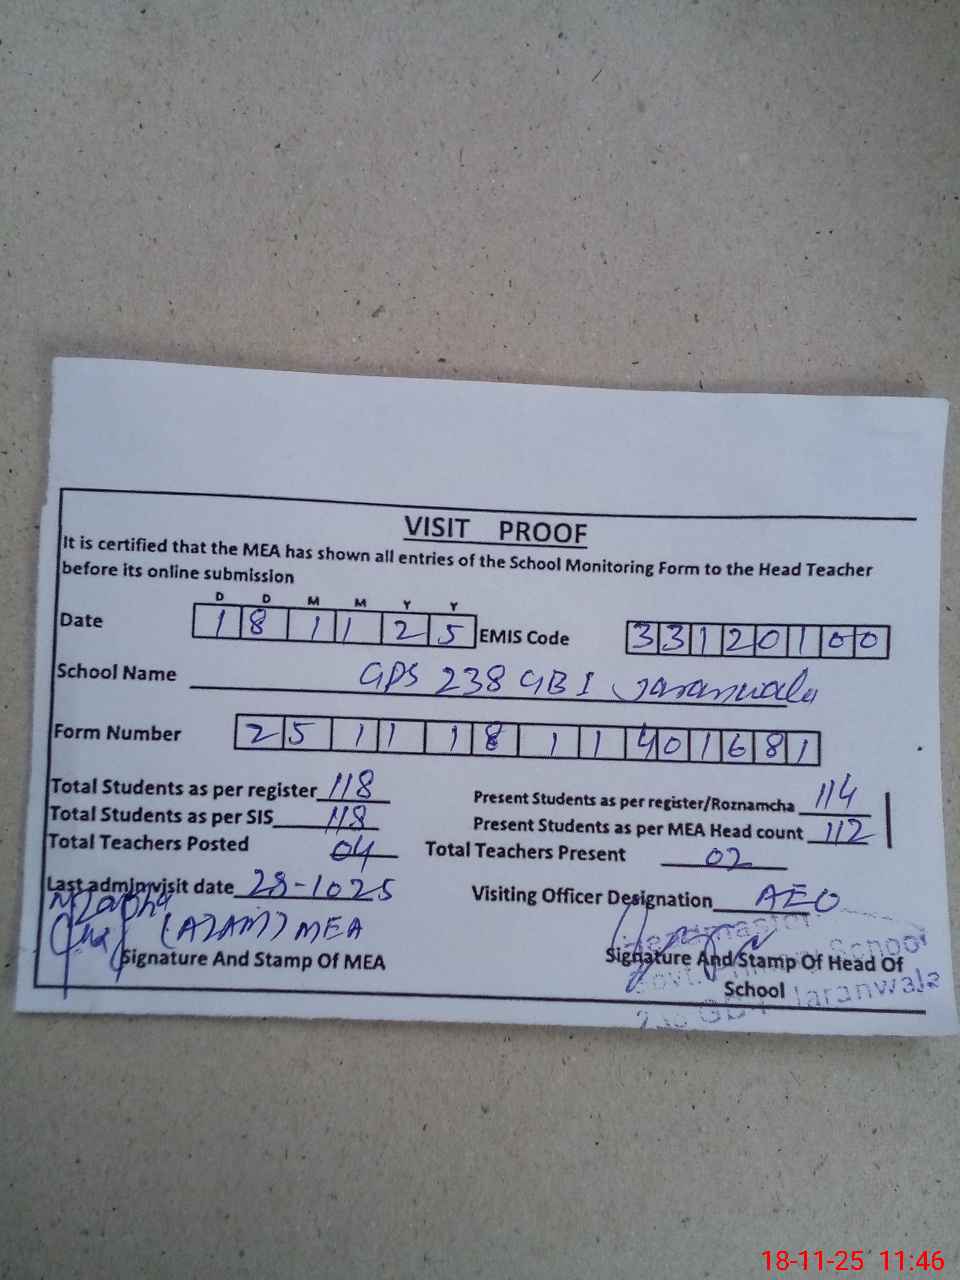 VISIT PROOF
It is certified that the MEA has shown all entries of the School Monitoring Form to the Head Teacher
before its online submission
D D M M Y Y
Date 1 8 1 1 2 5 EMIS Code 3 3 1 2 0 1 0 0
School Name GPS 238 GB I Jaranwala
Form Number 2 5 1 1 1 8 1 1 4 0 1 6 8 1
Total Students as per register 118 Present Students as per register/Roznamcha 114
Total Students as per SIS 118 Present Students as per MEA Head count 112
Total Teachers Posted 04 Total Teachers Present 02
Last admin visit date 28-1025 Visiting Officer Designation AEO
(AZAM) MEA
Headmaster
Signature And Stamp Of MEA Signature And Stamp Of Head Of
School
Govt. School
Jaranwala
18-11-25 11:46